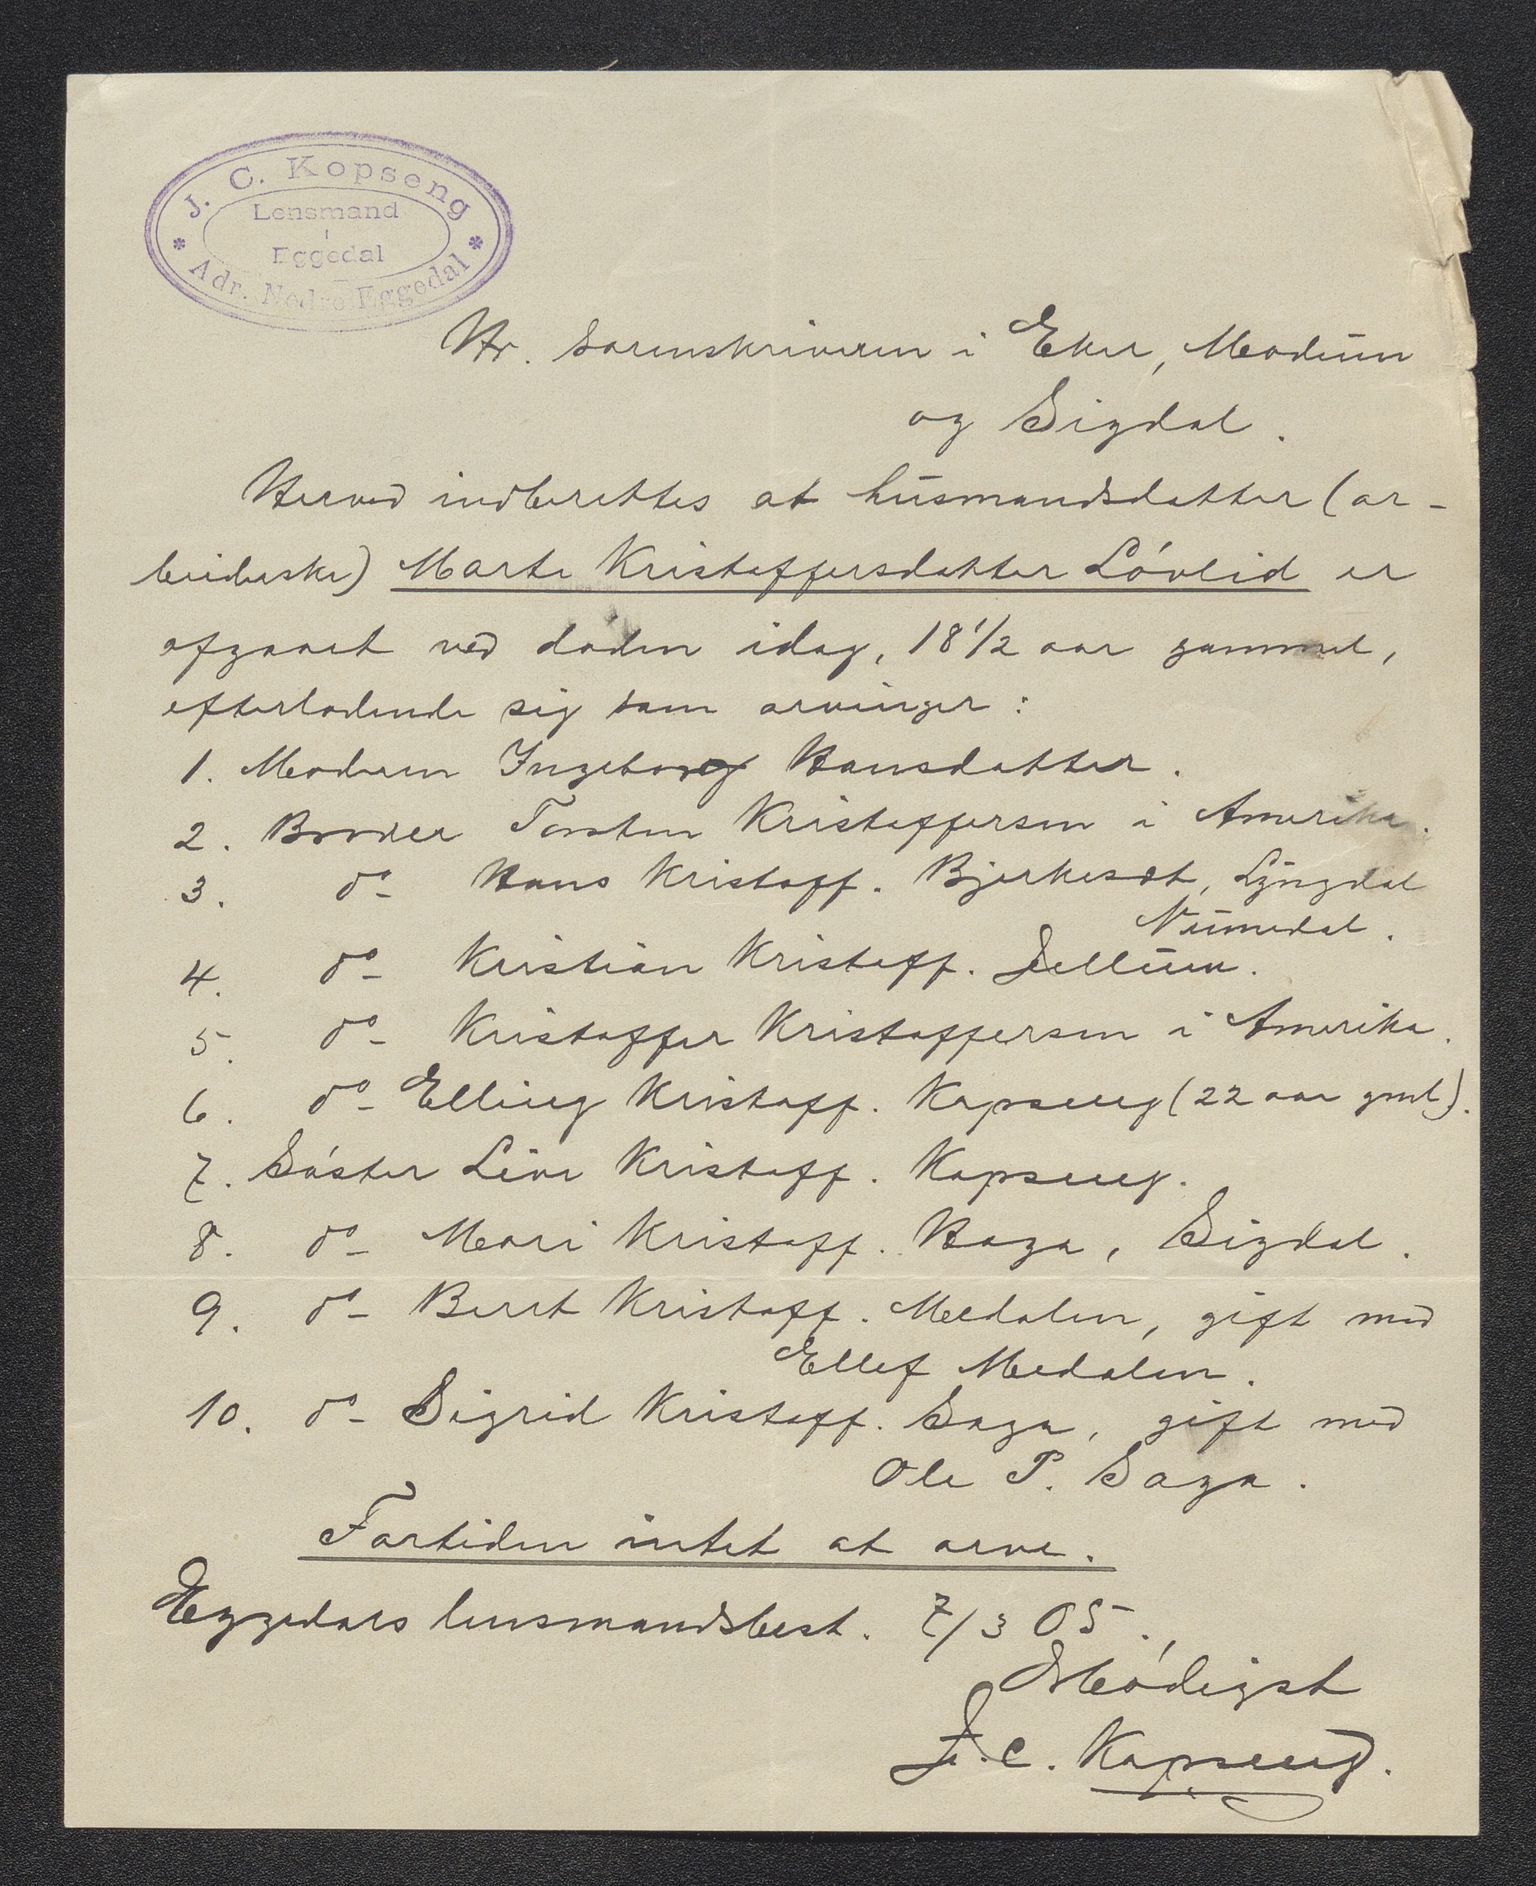 J. C. Kopseng
Lensmand
i
Eggedal
Adr. Nedre Eggedal
Hr. Sorenskriveren i Eker, Modum
og Sigdal.
Herved indberettes at husmandsdatter (ar-
beiderske) Marte Kristoffersdatter Lóvlid er
afgaaet ved døden idag, 18 1/2 aar gammel,
efterladende sig som arvinger:
1. Moderen Ingeborg Hansdatter.
2. Broder Torsten Kristoffersen i Amerika.
3. do Hans Kristoff. Bjerkesæt, Lyngdal
Numedal.
4. do Kristian Kristoff. Jellum.
5. do Kristoffer Kristoffersen i Amerika.
6. do Elling Kristoff. Kopseng (22 aar gml).
7. Sóster Live Kristoff. Kopseng.
8. do Mari Kristoff. Haga, Sigdal.
9. do Berit Kristoff. Medalen, gift med
Ellef Medalen.
10. do Sigrid Kristoff. Saga, gift med
Ole P. Saga.
Fortiden intet at arve.
Eggedals lensmandsbest. 7/3 05.
Ærbódigst
J. C. Kopseng.